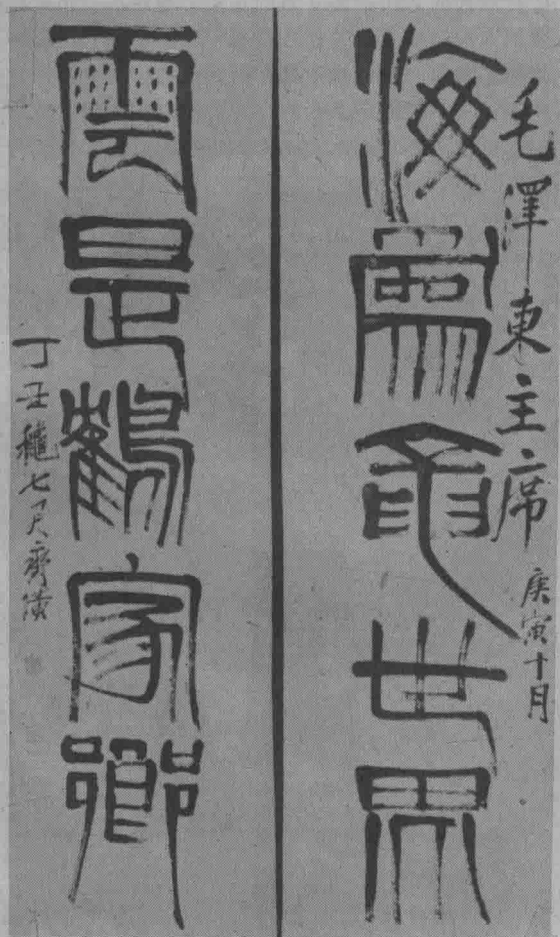 毛澤東主席 庚寅十月
海為龍世界
雲是鶴家鄉
丁丑穐七月齊璜